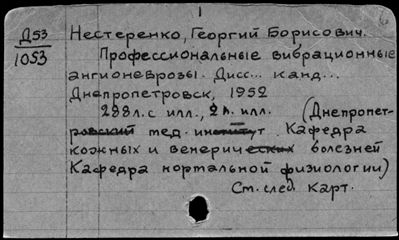 Д53
1053
Нестеренко, Георгий Борисович.
Профессиональные вибрационные
ангионеврозы. Дисс... канд...
Днепропетровск, 1952
298л. с илл., 2 л. илл. (Днепропет-
ровский мед. институт. Кафедра
кожных и венерических болезней
Кафедра нормальной физиологии)
См. след. карт.